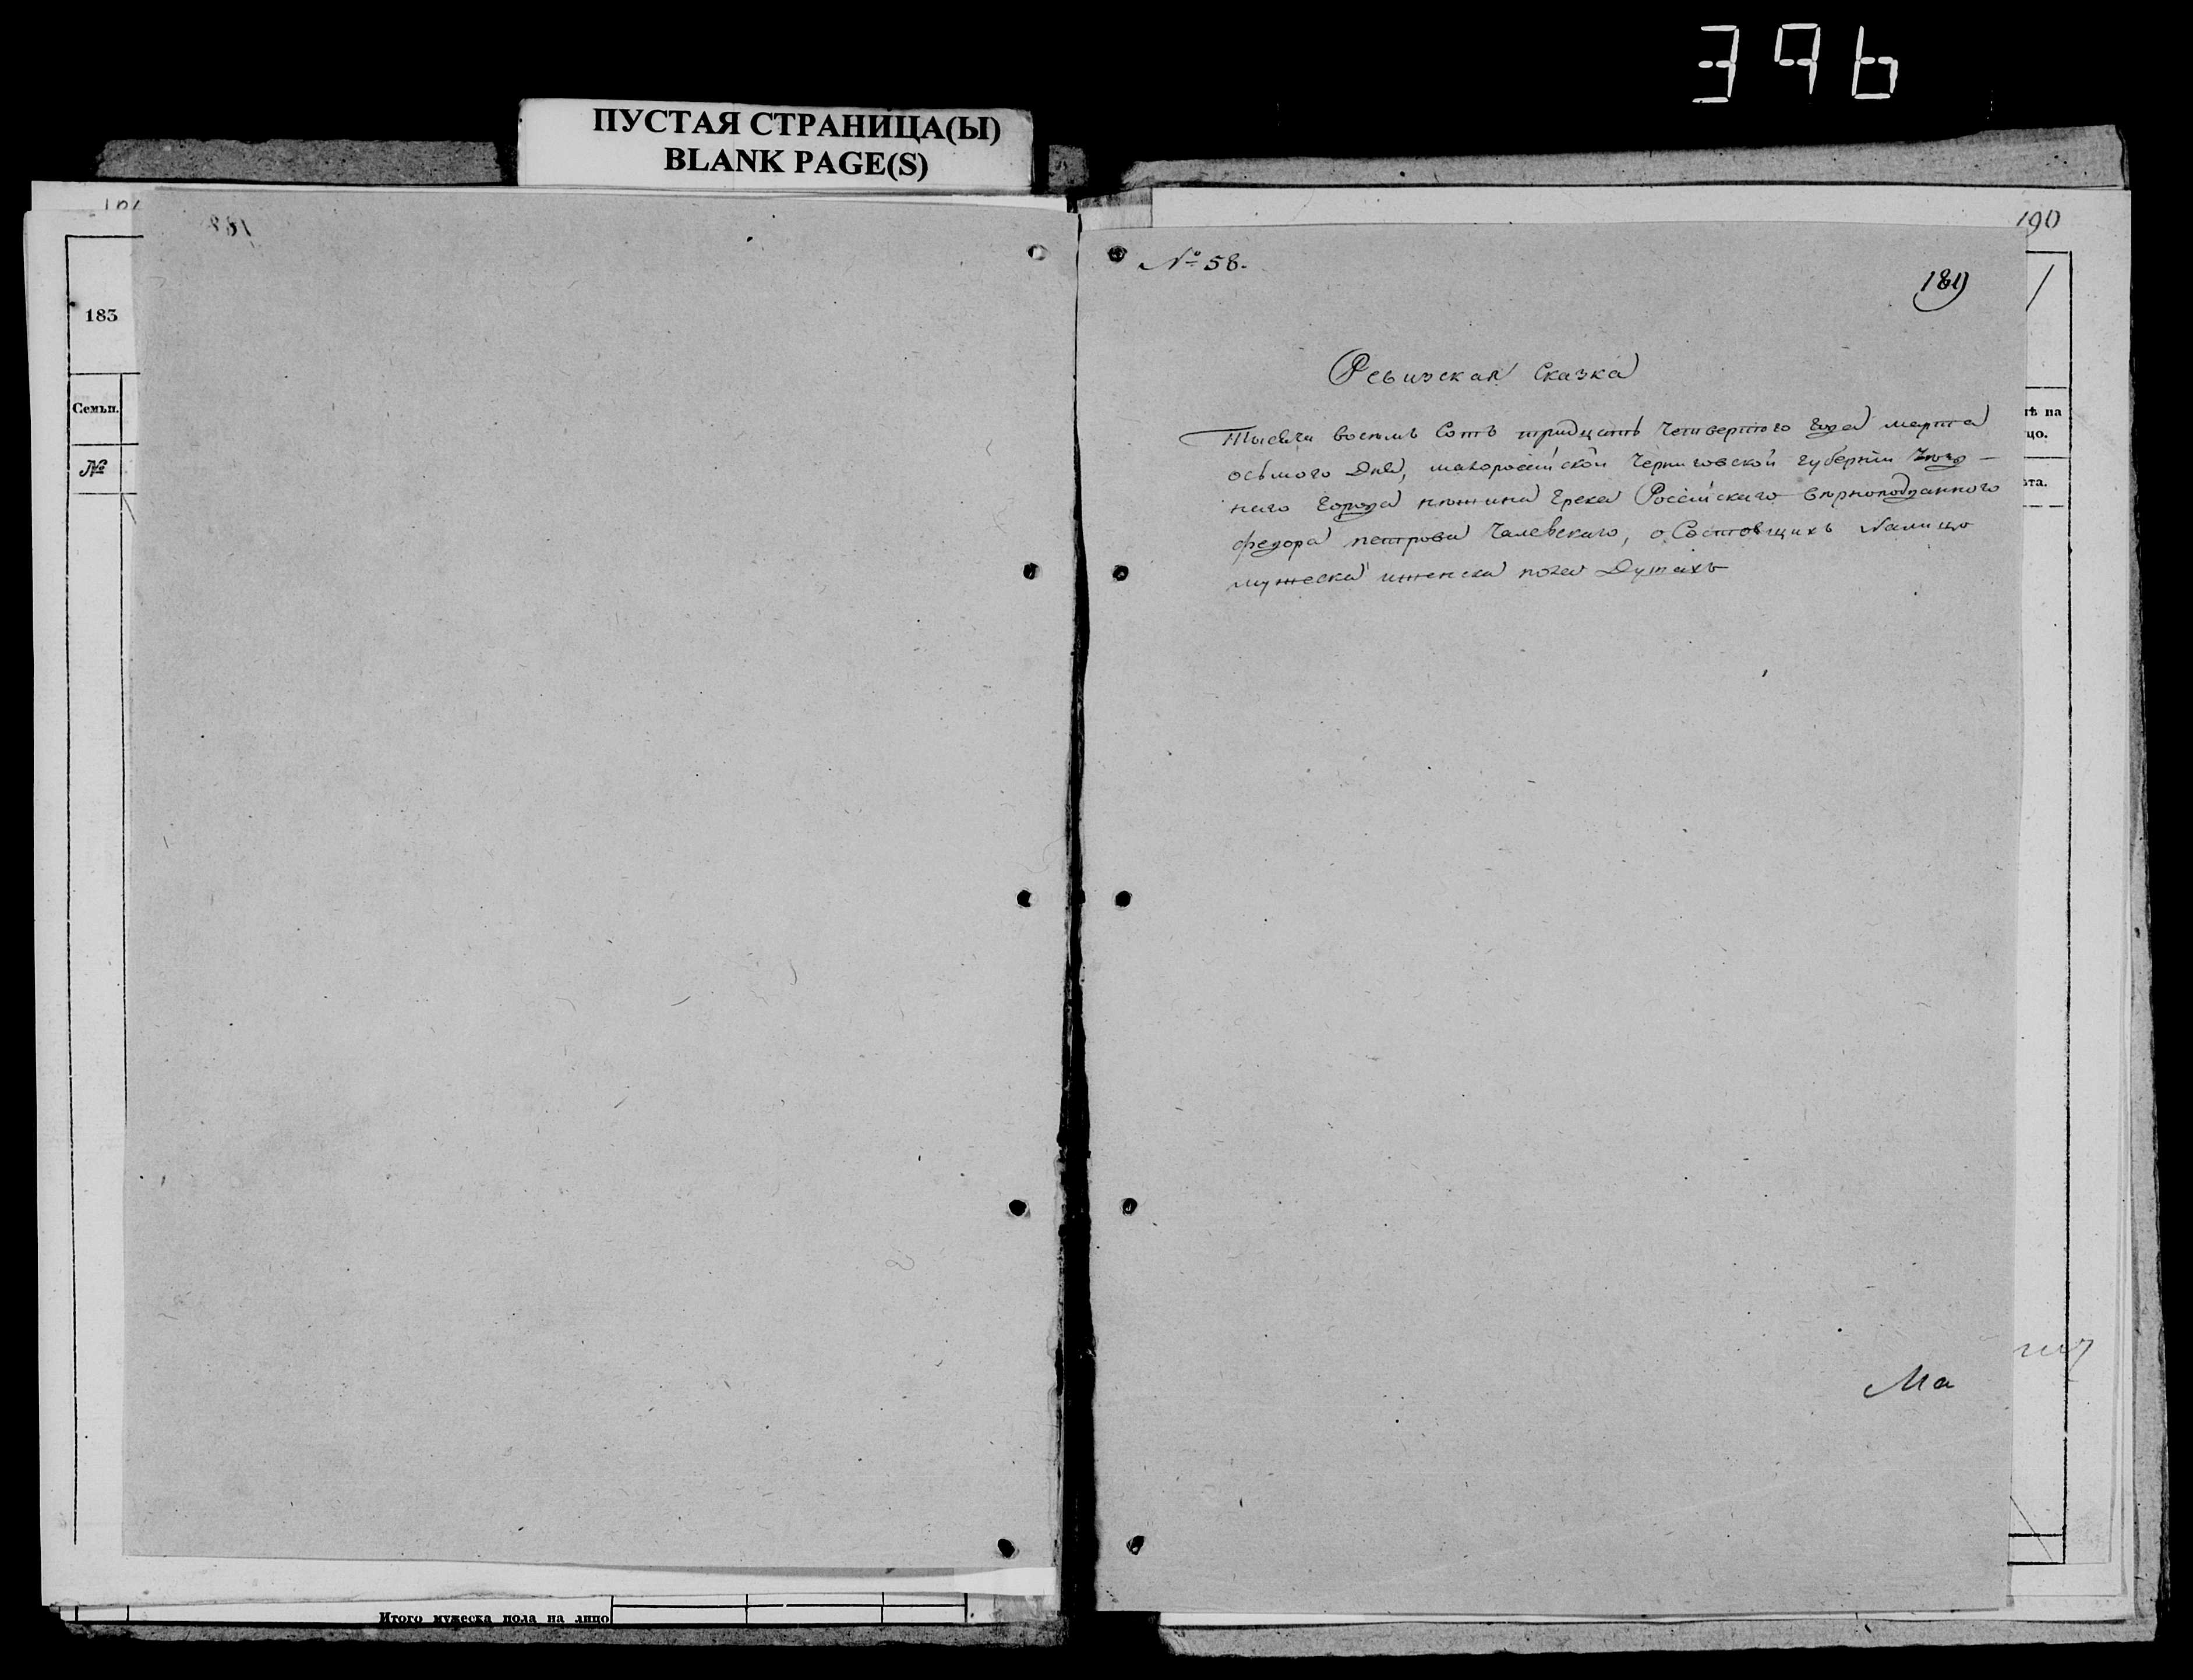 396
ПУСТАЯ СТРАНИЦА(Ы)
BLANK PAGE(S)
183
Семьи.
№
Итого мужеска пола на лицо
190
№ 58.
189
Ревизская Сказка
Тысяча восемь Сотъ тридцать Четвертого Года марта
осьмого Дня, малоросійской Черниговской губерніи
наго Города нѣжина Грека Россійскаго вѣрноподданного
федора петрова Чалевскаго, о Состоящихъ Налицо
мужеска иженска пола Душахъ
Ма
ѣ на
цо.
ѣта.